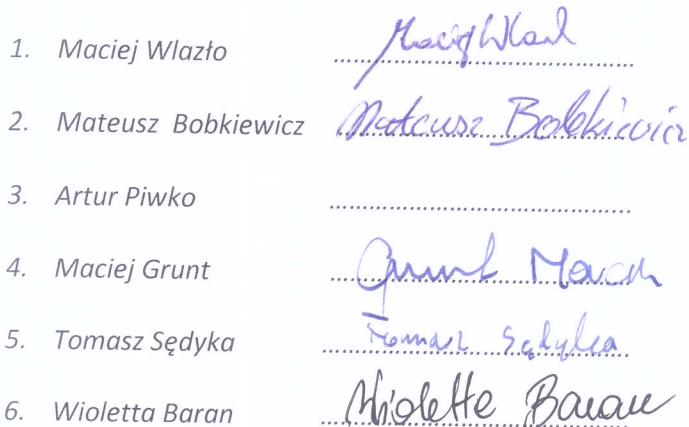 1. Maciej Wlazło Maciej Wlazło
2. Mateusz Bobkiewicz Mateusz Bobkiewicz
3. Artur Piwko
4. Maciej Grunt Grunt Maciej
5. Tomasz Sędyka Tomasz Sędyka
6. Wioletta Baran Wioletta Baran